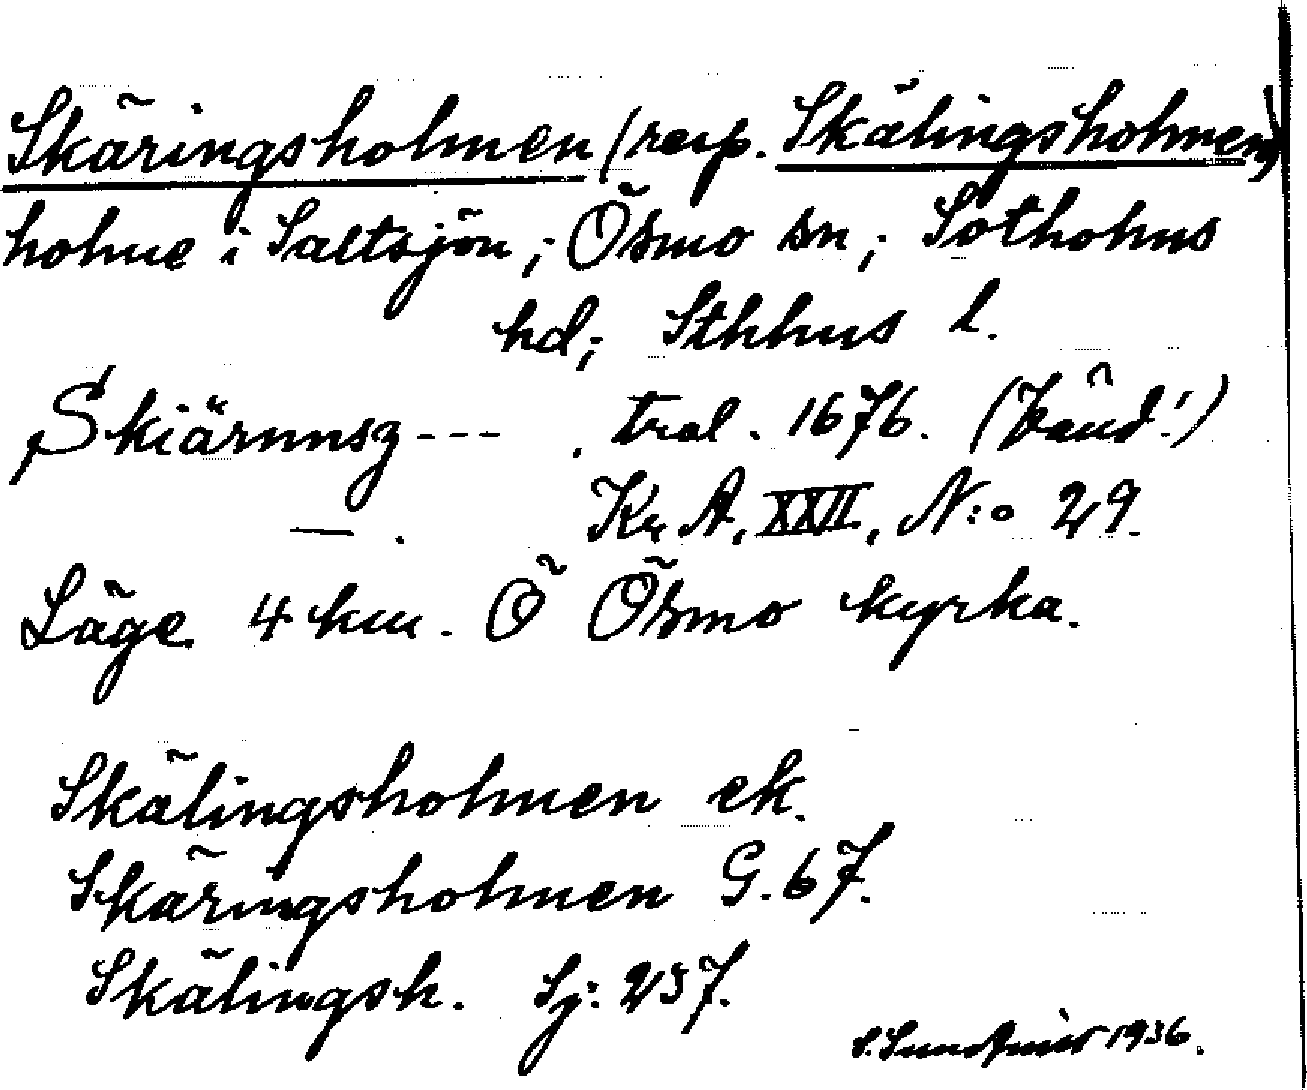 Skäringsholmen (resp. Skälingsholmen)
holme i Saltsjön; Ösmo sn; Sotholms
hd; Sthlms l.
Skiärnnsg --- . tral. 1676. ( )
— . Kr. A. XXII, N:o 29.
Läge 4 km. Ö Ösmo kyrka.
Skälingsholmen ek.
Skäringsholmen G. 67.
Skälingsh. Sj: 237.
1936.